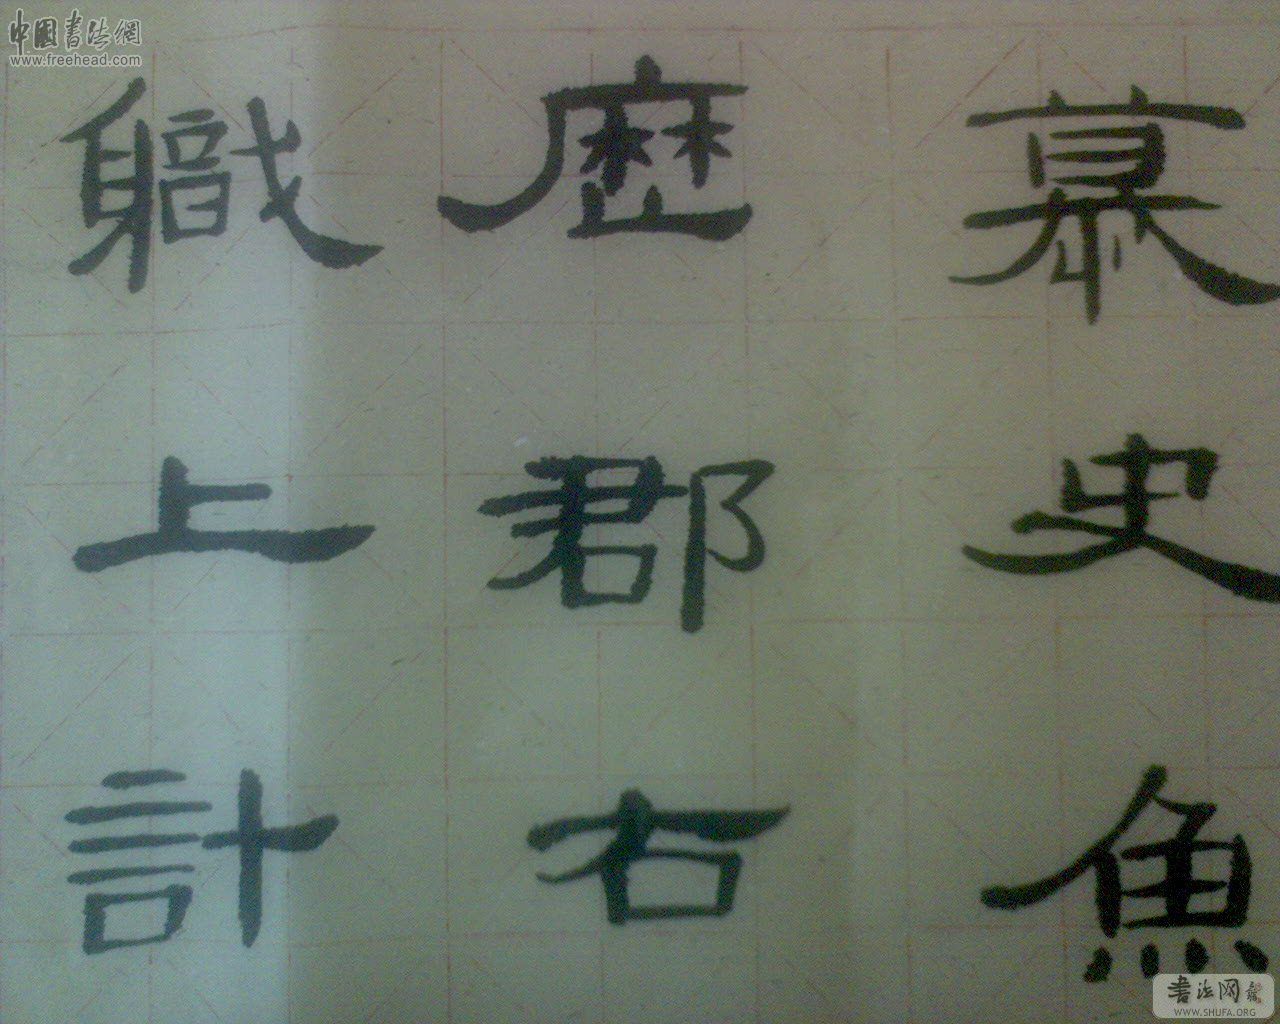 慕史魚
歷郡右
軄上計
中國書法網
www.freehead.com
書法网
WWW.SHUFA.ORG